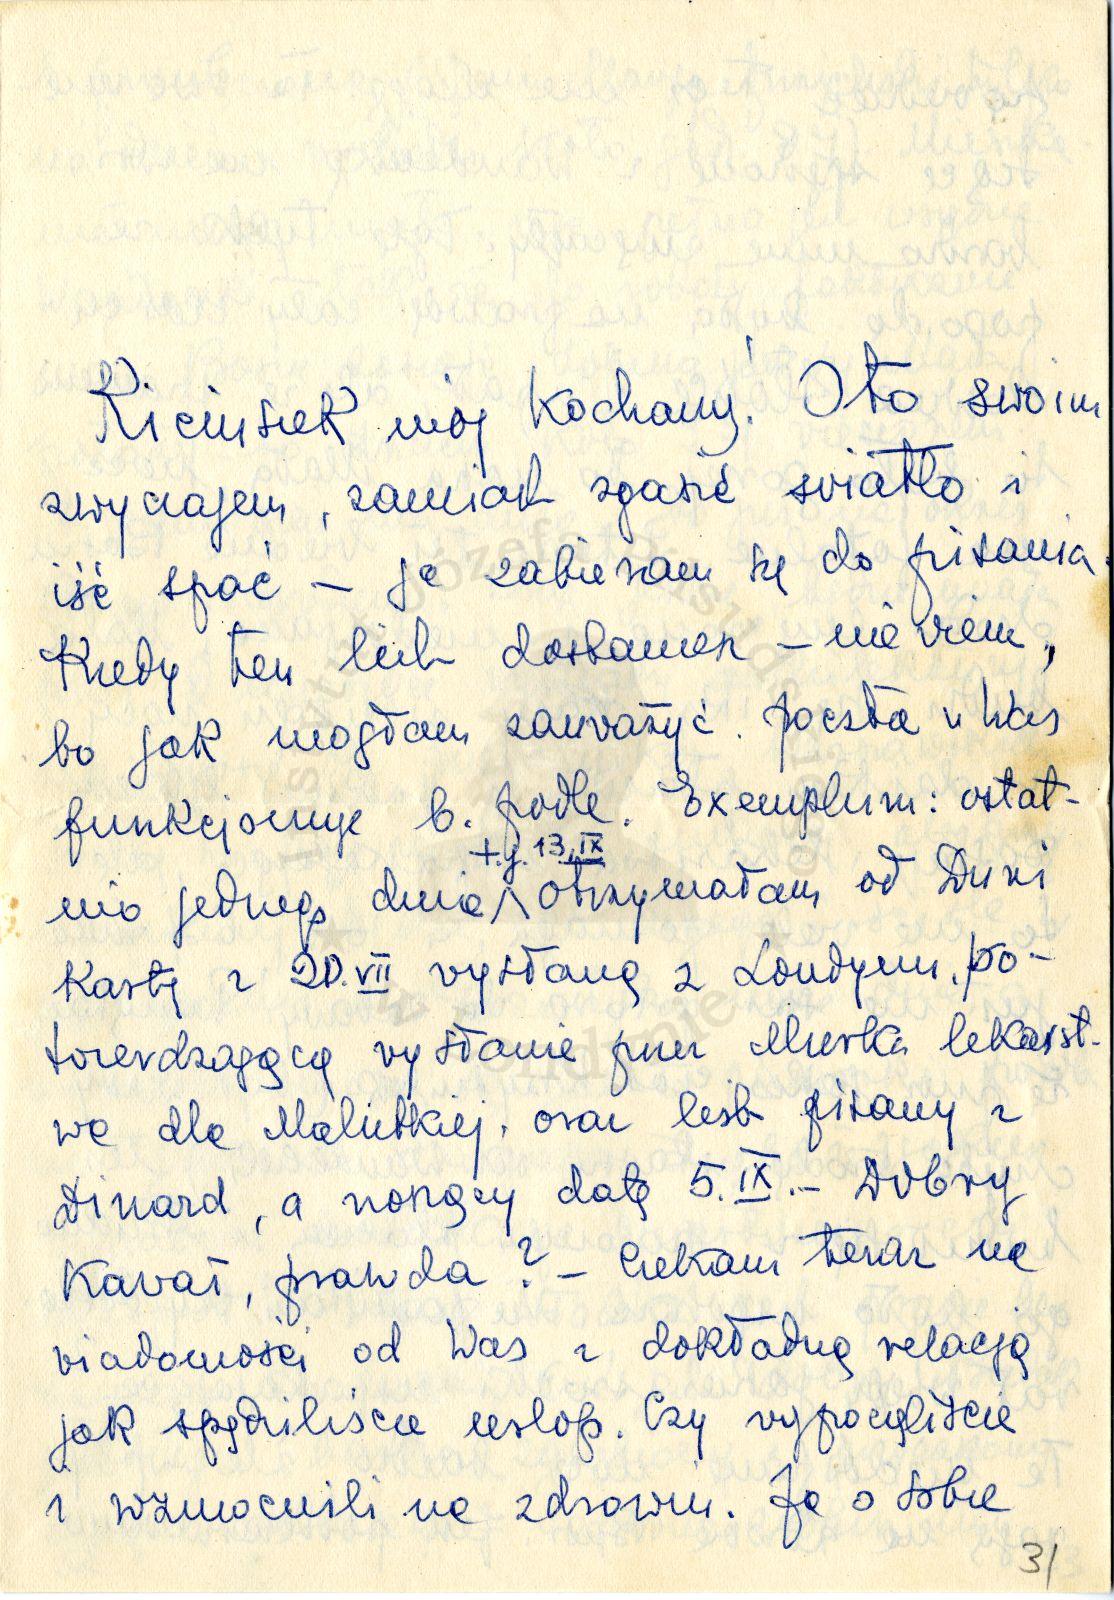 mój Kochany! Oto swoim
zwyczajem, zamiast zgasić światło i
iść spać – ja zabieram się do pisania.
Kiedy ten list dostaniesz – nie wiem,
bo jak mogłam zauważyć. poczta u Was
funkcjonuje b. podle. Exemplum: ostat-
t.j. 13.IX
nio jednego dnia otrzymałam od Duni
Kartę z 20.VII wysłaną z Londynu, po-
twierdzającą wysłanie przez Mirka lekarst-
wa dla Malutkiej, oraz list pisany z
Dinard, a noszący datę 5.IX.– Dobry
Kawał, prawda? – Czekam teraz na
wiadomości od Was z dokładną relacją
jak spędziliście urlop. Czy wypoczęliście
i wzmocnili na zdrowiu. Ja o sobie
31
Instytut Józefa Piłsudskiego
w Londynie